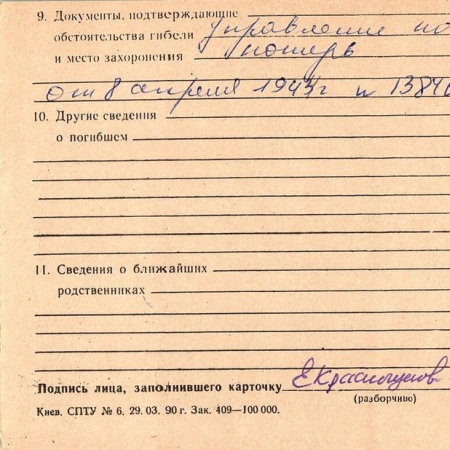 9. Документы, подтверждающие
обстоятельства гибели управление по
и место захоронения потерь
от 8 апреля 1943 г
10. Другие сведения
о погибшем
11. Сведения о ближайших
родственниках
Подпись лица, заполнившего карточку
(разборчиво)
Киев. СПТУ № 6. 29. 03. 90 г. Зак. 409—100 000.